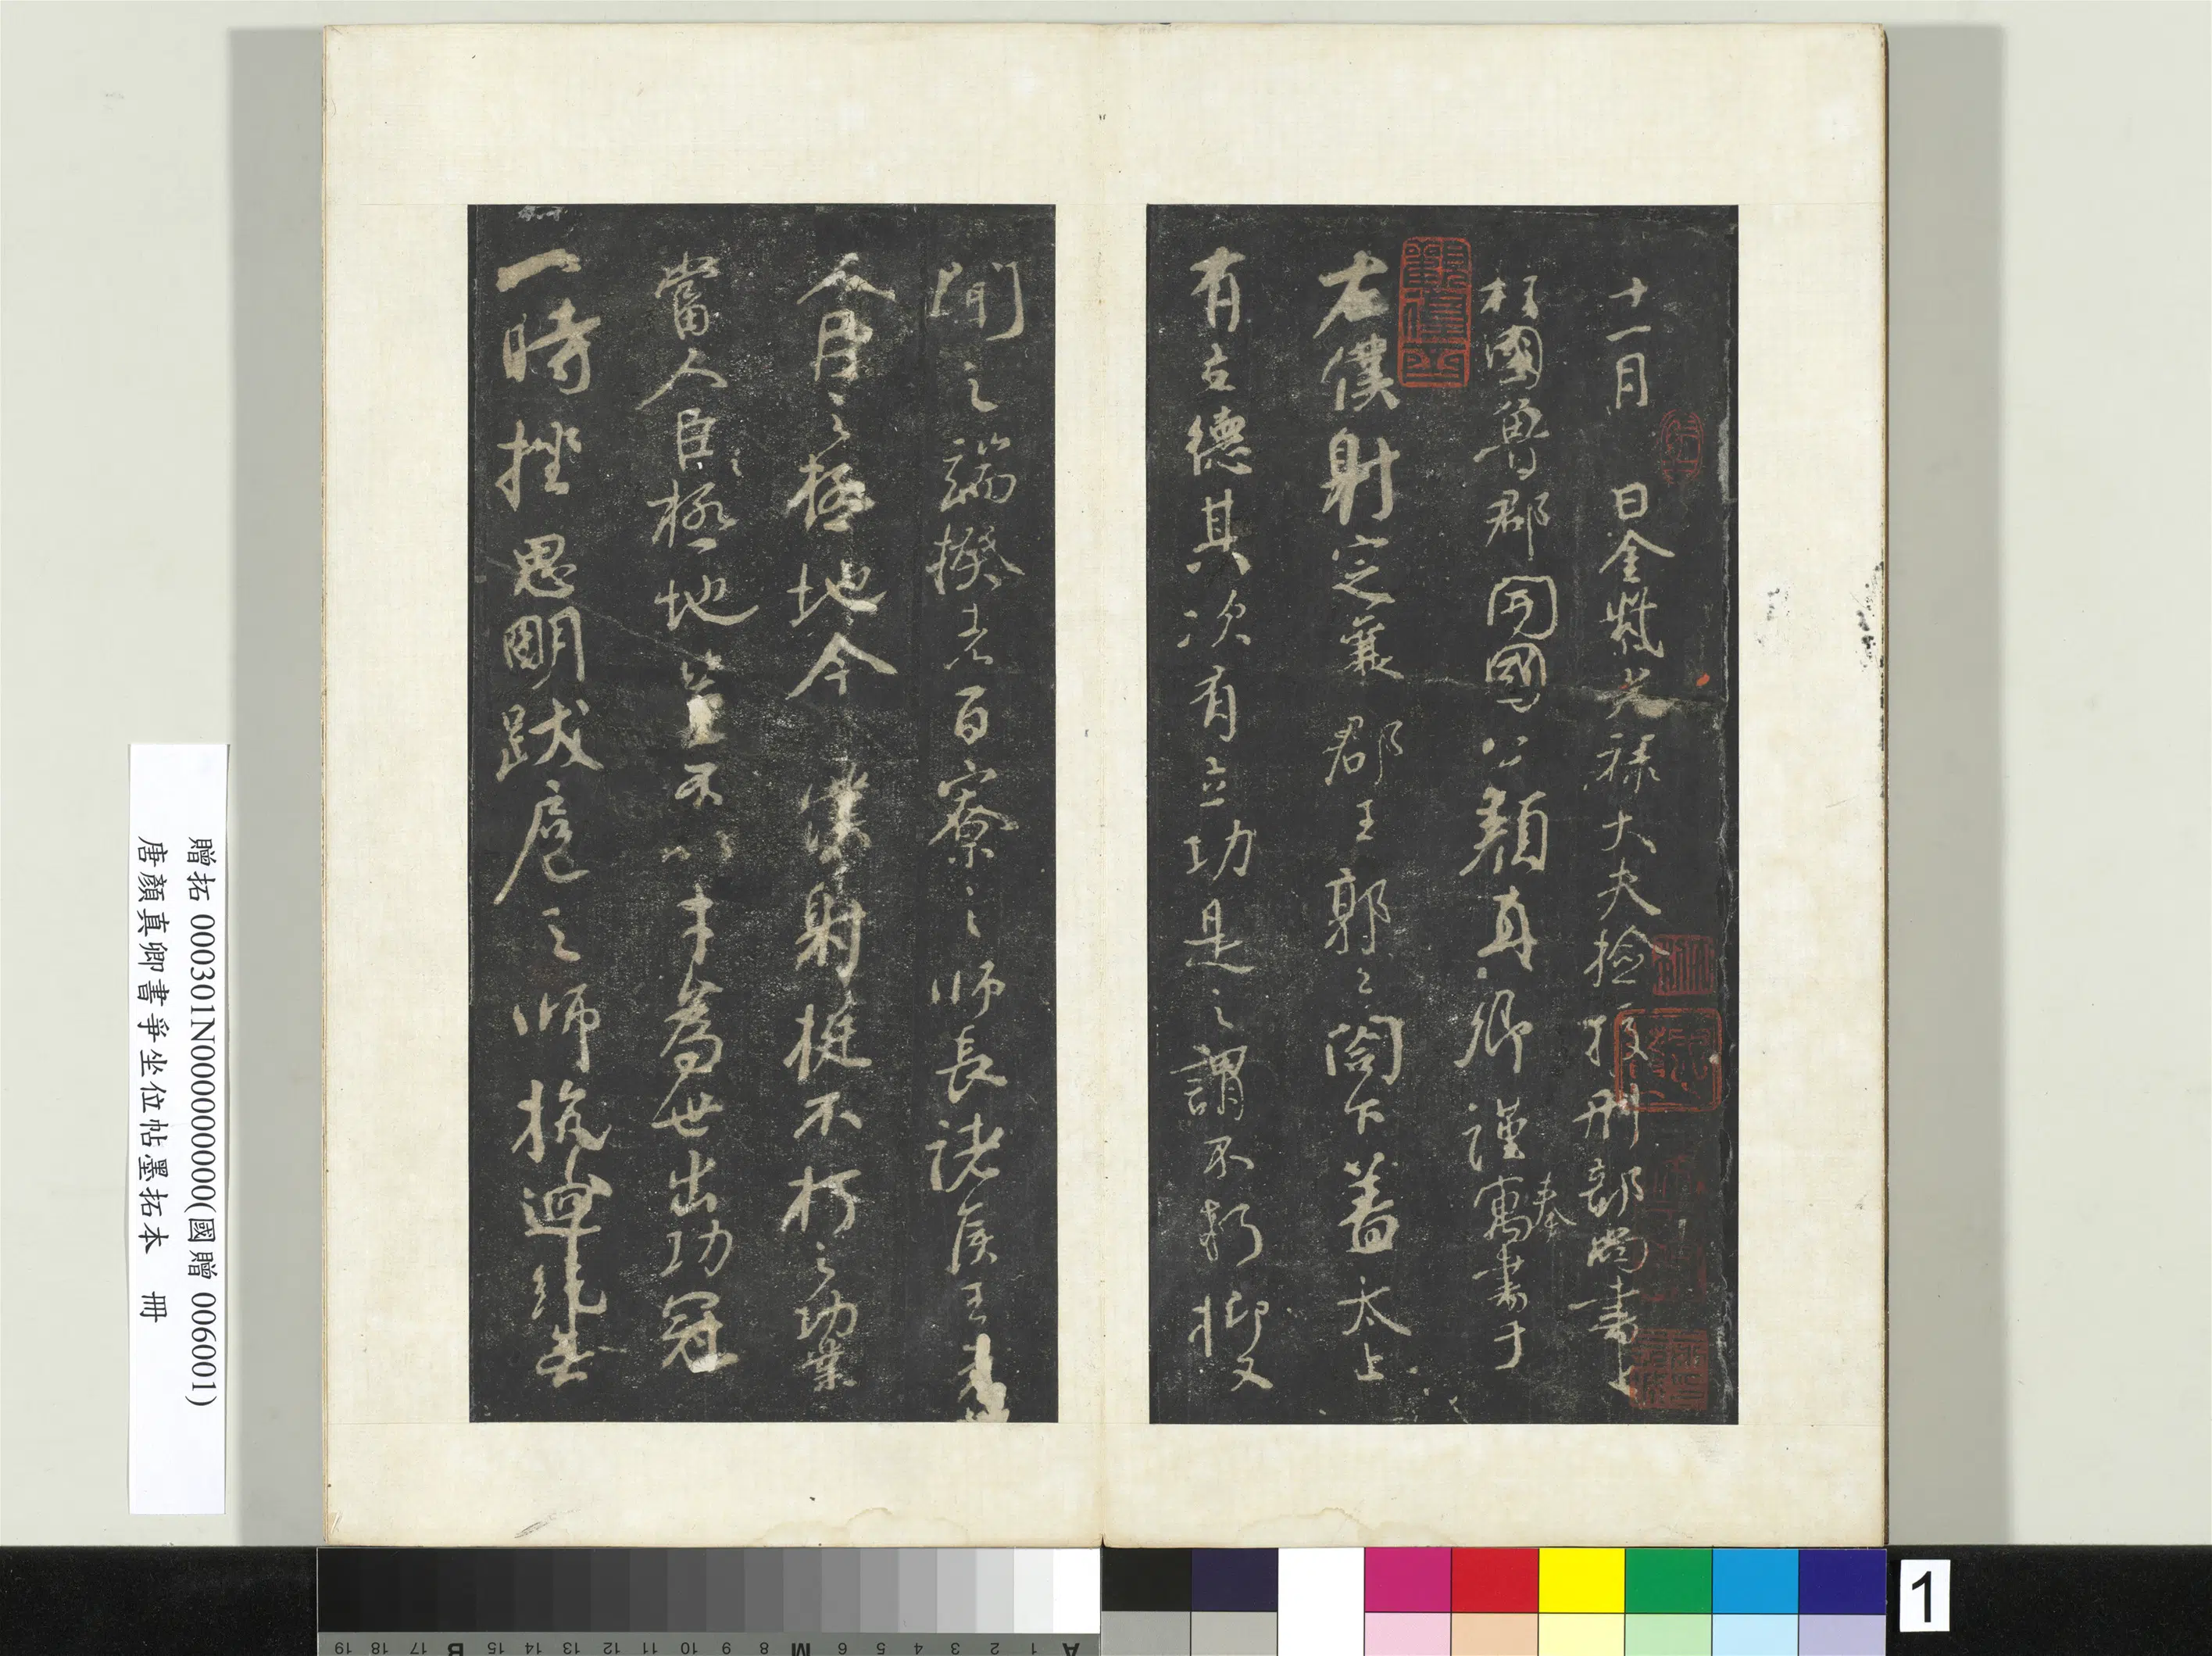 十一月 日金紫光祿大夫檢挍刑部尚書上
柱國魯郡開國公顏真卿謹奉寓書于
右僕射定襄郡王郭公閤下蓋太上
有立德其次有立功是之謂不朽抑又
聞之端揆者百寮之師長諸侯王者
人臣之極地今僕射挺不朽之功業
當人臣之極地豈不以才為世出功冠
一時挫思明跋扈之師抗迴紇無
贈拓 000301N000000000(國贈 006001)
唐顏真卿書爭坐位帖墨拓本 冊
A 1 2 3 4 5 6 7 8 M 9 10 11 12 13 14 15 B 17 18 19
1